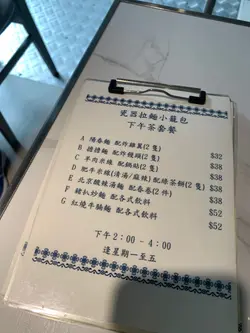 瓷器拉麵小籠包
下午茶套餐
A 陽春麵 配炸雞翼(2隻) $32
B 擔擔麵 配炸饅頭(2隻) $38
C 羊肉米線 配鍋貼(2隻) $38
D 肥牛米線(清湯/麻辣) 配港茶餅(2隻) $38
E 北京酸辣湯麵 配春卷(2件) $38
F 豬扒炒麵 配各式飲料 $52
G 紅燒牛腩麵 配各式飲料 $52
下午2:00 - 4:00
逢星期一至五